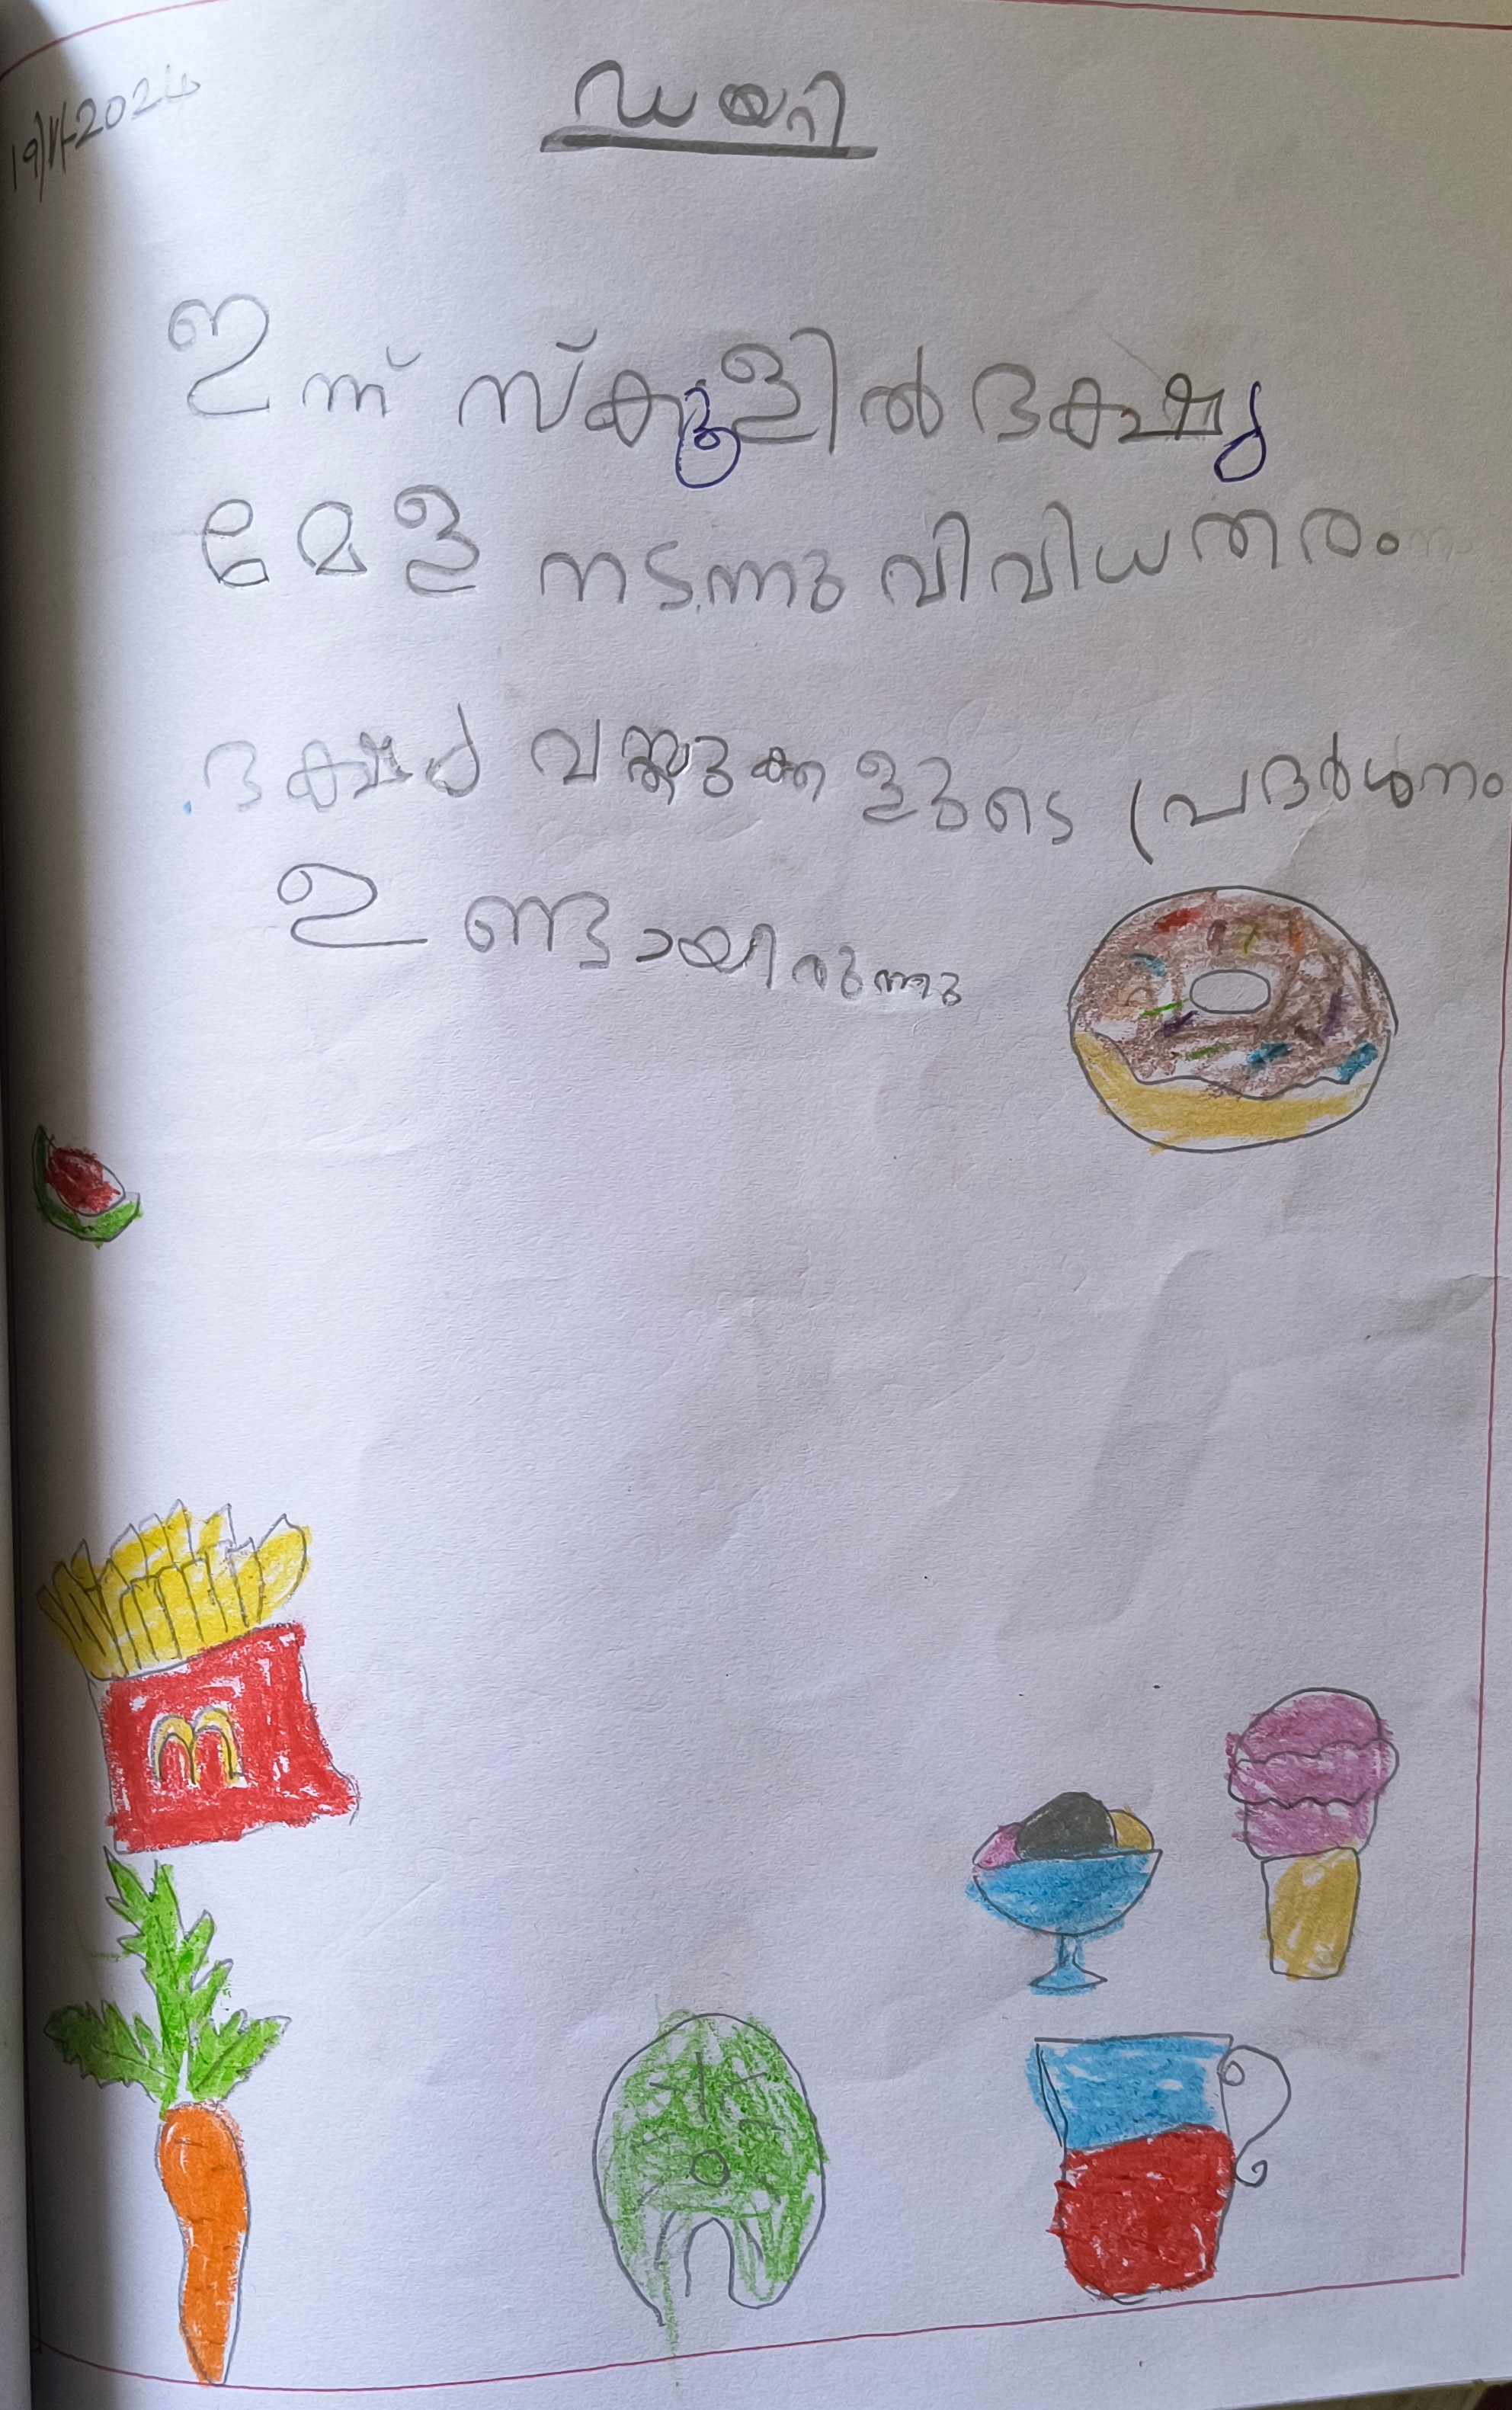 19/11/2024
ഡയറി
ഇന്ന് സ്കൂളിൽ ഭക്ഷ്യ
മേള നടന്നു വിവിധതരം
ഭക്ഷ്യ വസ്തുക്കളുടെ പ്രദർശനം
ഉണ്ടായിരുന്നു
m